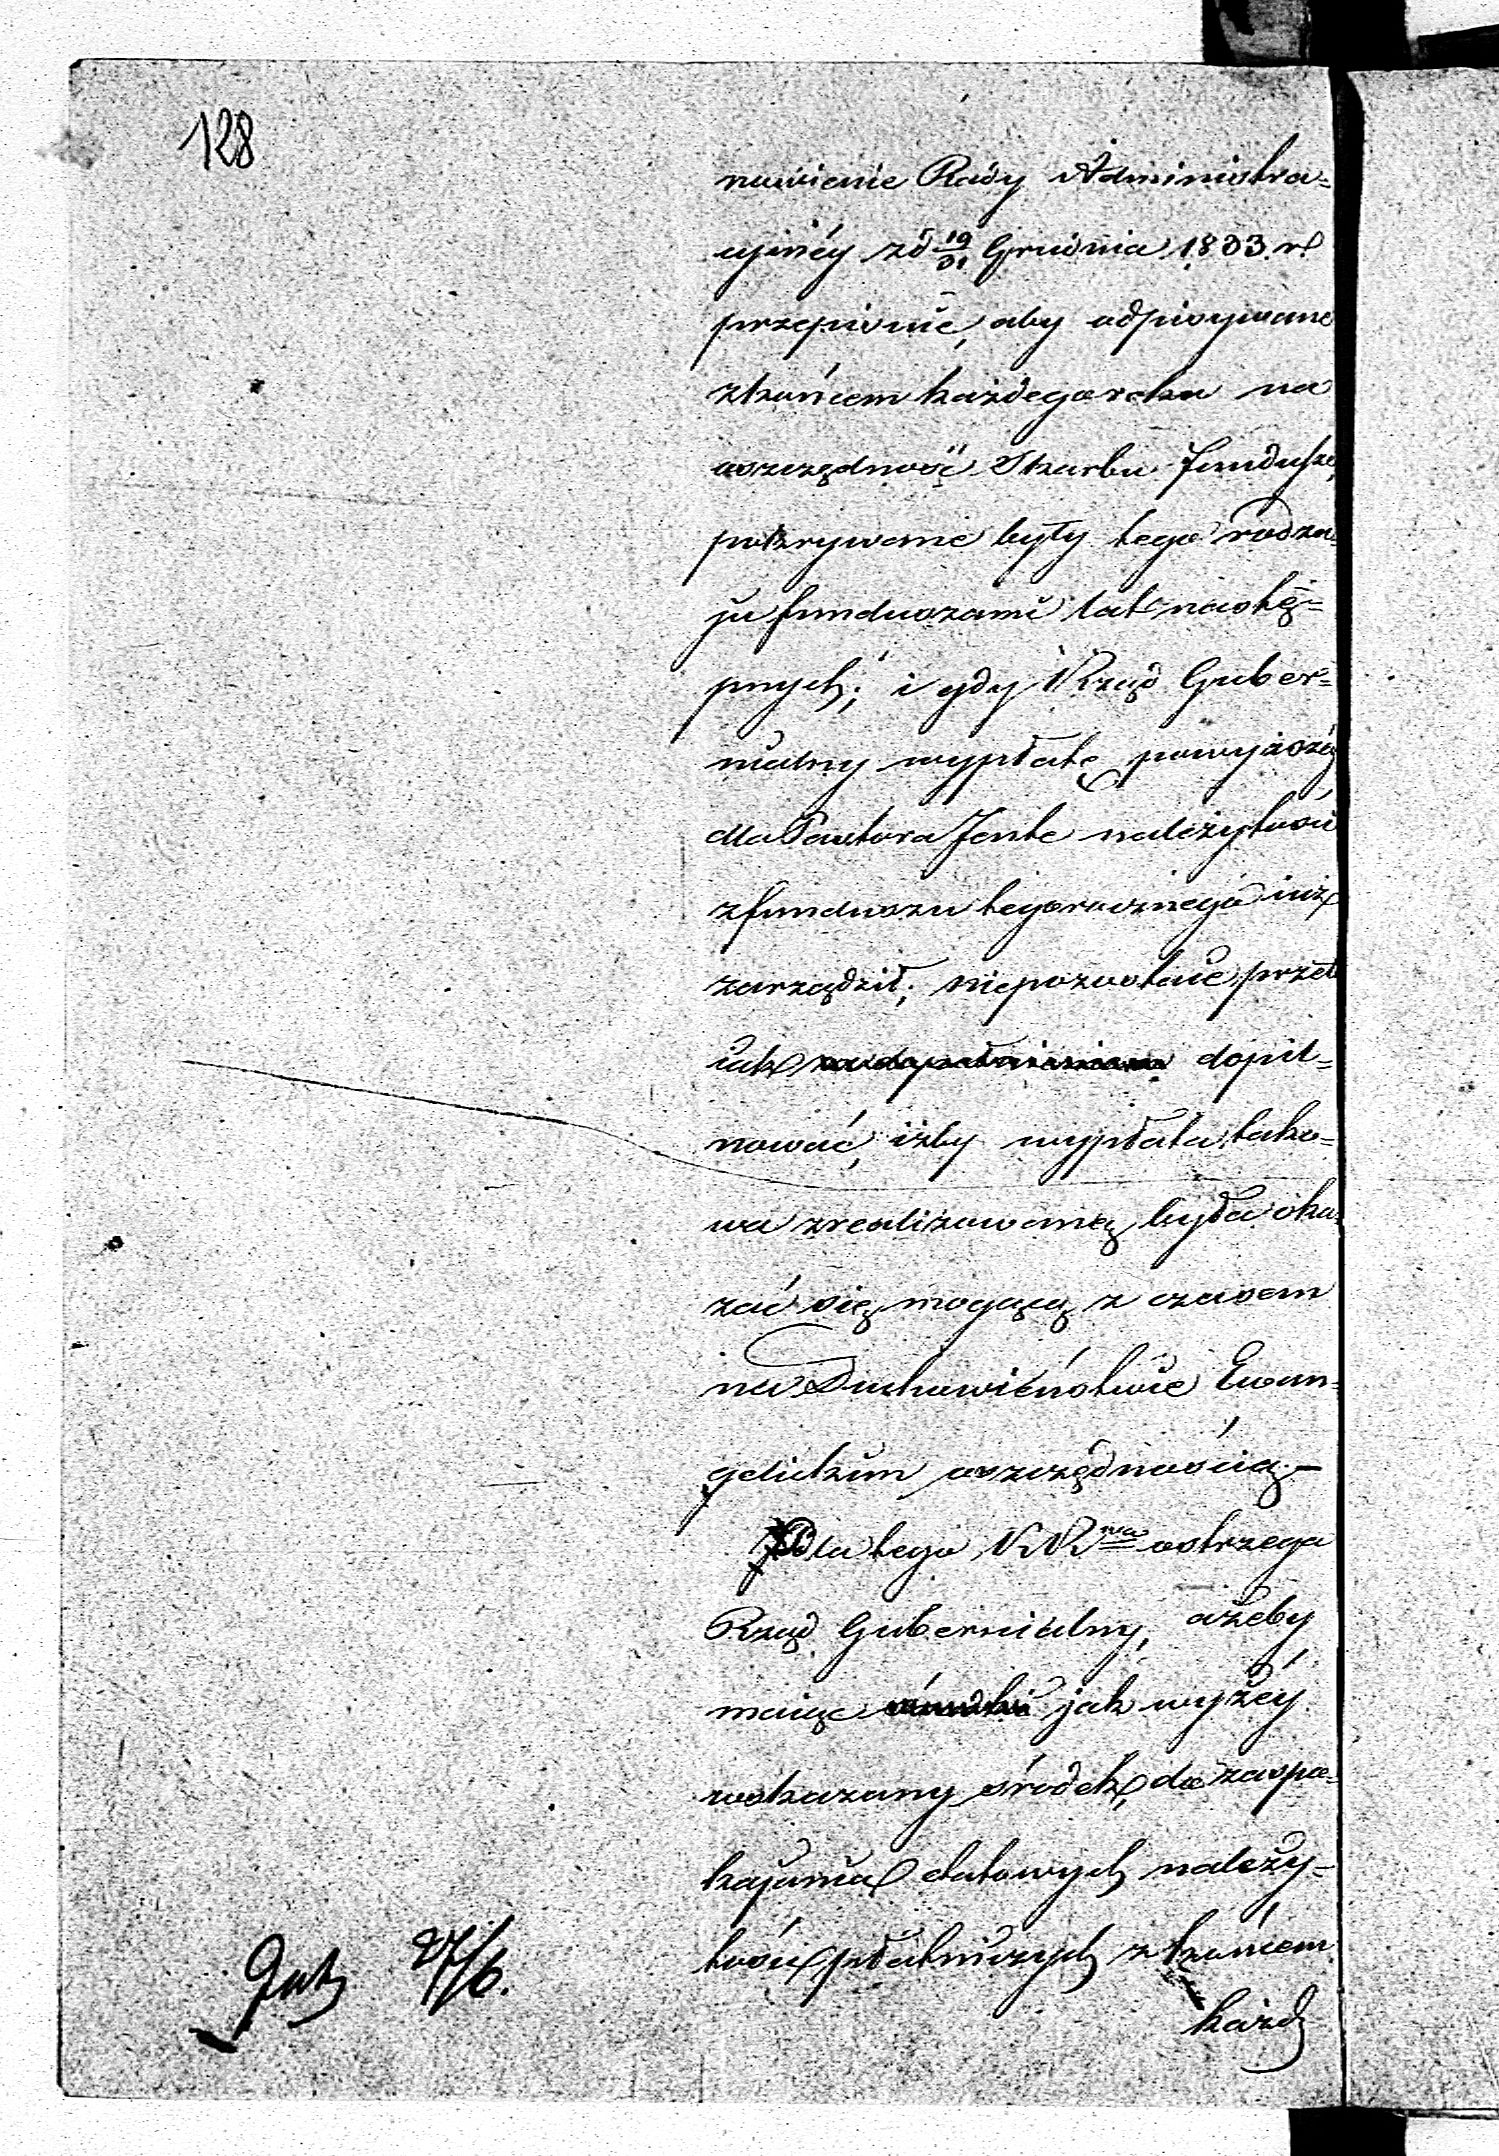 128
nowienie Rady Administra=
cyinéy zd 19/31 Grudnia 1833 r.
przepisuie, aby odpisywane
zkońcem każdego roku na
oszczędność Skarbu fundusze,
pokrywane były tego rodza=
ju funduszami lat nastę=
pnych; i gdy Rząd Guber=
nialny wypłatę powyższéy
dla Pastora Jenke należytości
zfunduszu tegorocznego iuż
zarządził; niepozostaie, przeto
iak dopil=
nować, iżby wypłata tako=
wa zrealizowaną była oka=
zać się mogącą z czasem
na Duchowieństwie Ewan=
gelickim oszczędnością.—
Dla tego KR wa ostrzega
Rząd Gubernialny, ażeby
maiąc jak wyżéy
wskazany środek, do zaspo=
kajania etatowych należy=
tości płatniczych z końcem
każd
27/6.